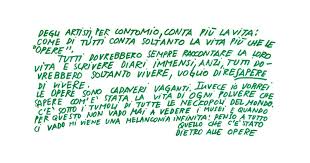 DEGLI ARTISTI PER CONTOMIO, CONTA PIÙ LA VITA:
COME DI TUTTI CONTA SOLTANTO LA VITA PIÙ CHE LE
"OPERE".
TUTTI DOVREBBERO SEMPRE RACCONTARE LA LORO
VITA E SCRIVERE DIARI IMMENSI, ANZI, TUTTI DO-
VREBBERO SOLTANTO VIVERE, VOGLIO DIRE SAPERE
DI VIVERE.
LE OPERE SONO CADAVERI VAGANTI. INVECE IO VORREI
SAPERE COM'È STATA LA VITA DI OGNI POLVERE CHE
C'È SOTTO I TUMULI DI TUTTE LE NECROPOLI DEL MONDO.
PER QUESTO NON VADO MAI A VEDERE I MUSEI E QUANDO
CI VADO MI VIENE UNA MELANCONIA INFINITA: PENSO A TUTTO
QUELLO CHE C'È STATO
DIETRO ALLE OPERE